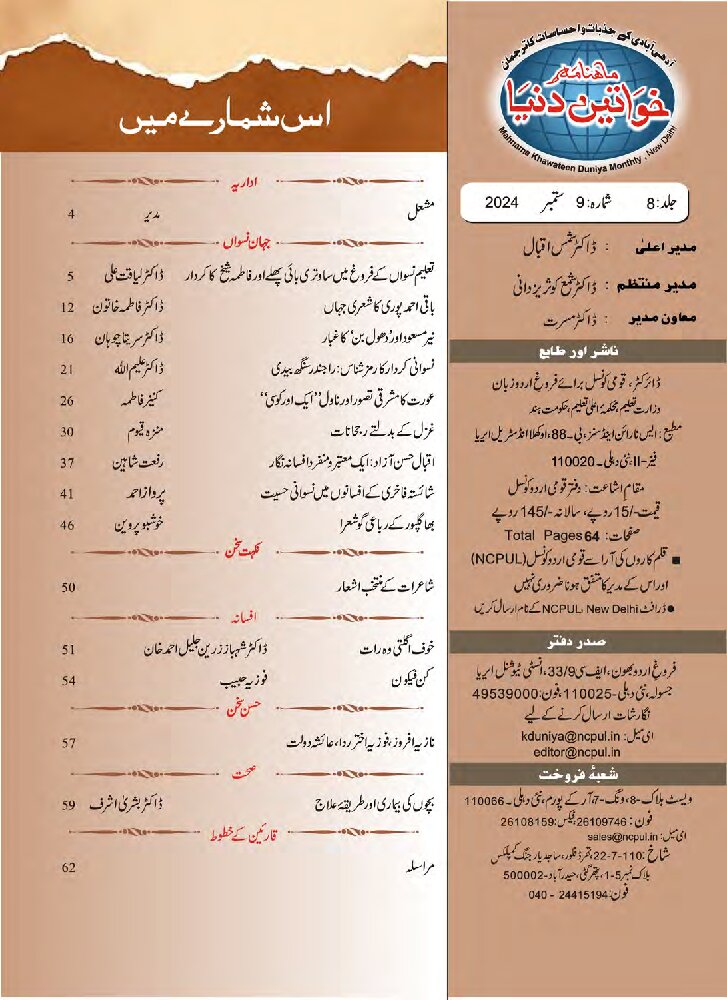 آدھی آبادی کے جذبات و احساسات کا ترجمان
ماھنامہ
خواتین دنیا
Mahnama Khawateen Duniya Monthly, New Delhi
جلد: 8 شمارہ: 9 ستمبر 2024
مدیر اعلیٰ : ڈاکٹر شمس اقبال
مدیر منتظم : ڈاکٹر شمع کوثر یزدانی
معاون مدیر : ڈاکٹر مسرت
ناشر اور طابع
ڈائرکٹر، قومی کونسل برائے فروغ اردو زبان
وزارت تعلیم، محکمۂ اعلیٰ تعلیم، حکومت ہند
مطبع: ایس نارائن اینڈ سنز، بی۔88، اوکھلا انڈسٹریل ایریا
فیز-II، نئی دہلی۔ 110020
مقام اشاعت: دفتر قومی اردو کونسل
قیمت -/15 روپے، سالانہ -/145 روپے
صفحات: Total Pages 64
■ قلم کاروں کی آرا سے قومی اردو کونسل (NCPUL)
اور اس کے مدیر کا متفق ہونا ضروری نہیں
● ڈرافٹ NCPUL، New Delhi کے نام ارسال کریں
صدر دفتر
فروغ اردو بھون، ایف سی 33/9، انسٹی ٹیوشنل ایریا
جسولہ، نئی دہلی -110025، فون: 49539000
نگارشات ارسال کرنے کے لیے
ای میل: kduniya@ncpul.in
editor@ncpul.in
شعبۂ فروخت
ویسٹ بلاک -8، ونگ -7، آر کے پورم، نئی دہلی ۔ 110066
فون: 26109746، فیکس: 26108159
ای میل: sales@ncpul.in
شاخ: 110-7-22، تھرڈ فلور، ساجد یار جنگ کمپلکس
بلاک نمبر 5-1، پتھر گٹی، حیدرآباد - 500002
فون: 24415194 - 040
اس شمارے میں
اداریہ
مشعل مدیر 4
جہان نسواں
تعلیم نسواں کے فروغ میں ساوتری بائی پھلے اور فاطمہ شیخ کا کردار ڈاکٹر لیاقت علی 5
باقی احمد پوری کا شعری جہاں ڈاکٹر فاطمہ خاتون 12
نیر مسعود اور 'دھول بن' کا غبار ڈاکٹر سریتا چوہان 16
نسوانی کردار کا رمز شناس: راجندر سنگھ بیدی ڈاکٹر علیم اللہ 21
عورت کا مشرقی تصور اور ناول "ایک اور کوسی" کنیز فاطمہ 26
غزل کے بدلتے رجحانات منزہ قیوم 30
اقبال حسن آزاد: ایک معتبر و منفرد افسانہ نگار رفعت شاہین 37
شائستہ فاخری کے افسانوں میں نسوانی حسیت پرواز احمد 41
بھاگلپور کے رباعی گو شعرا خوشبو پروین 46
نکہت سخن
شاعرات کے منتخب اشعار 50
افسانہ
خوف اگلتی وہ رات ڈاکٹر شہباز زرین جلیل احمد خان 51
کن فیکون فوزیہ حبیب 54
حسن سخن
نازیہ افروز، فوزیہ اختر ردا، عائشہ دولت 57
صحت
بچوں کی بیماری اور طریقۂ علاج ڈاکٹر بشریٰ اشرف 59
قارئین کے خطوط
مراسلہ 62